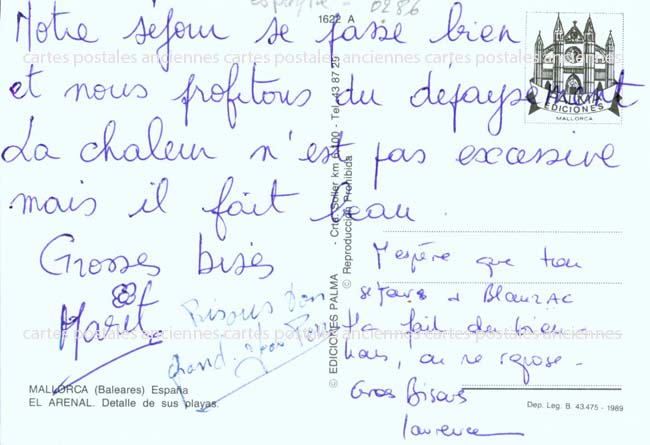 espagne - 0286
1622 A
Notre séjour se passe bien
et nous profitons du dépaysement
La chaleur n'est pas excessive
mais il fait beau.
Grosses bises
Bisous d'un
grand-
J'espère que ton
séjour à BlanzAC
t'a fait du bien -
Nous, on se repose -
Gros Bisous
laurence
cartes postales anciennes cartes postales anciennes cartes postales anciennes
cartes postales anciennes cartes postales anciennes cartes postales anciennes
PALMA
EDICIONES
MALLORCA
© EDICIONES PALMA - Crta. Soller km 6.100 - Tel. 43 87 29
© Reproducción Prohibida
MALLORCA (Baleares) España
EL ARENAL. Detalle de sus playas.
Dep. Leg. B. 43.475 - 1989